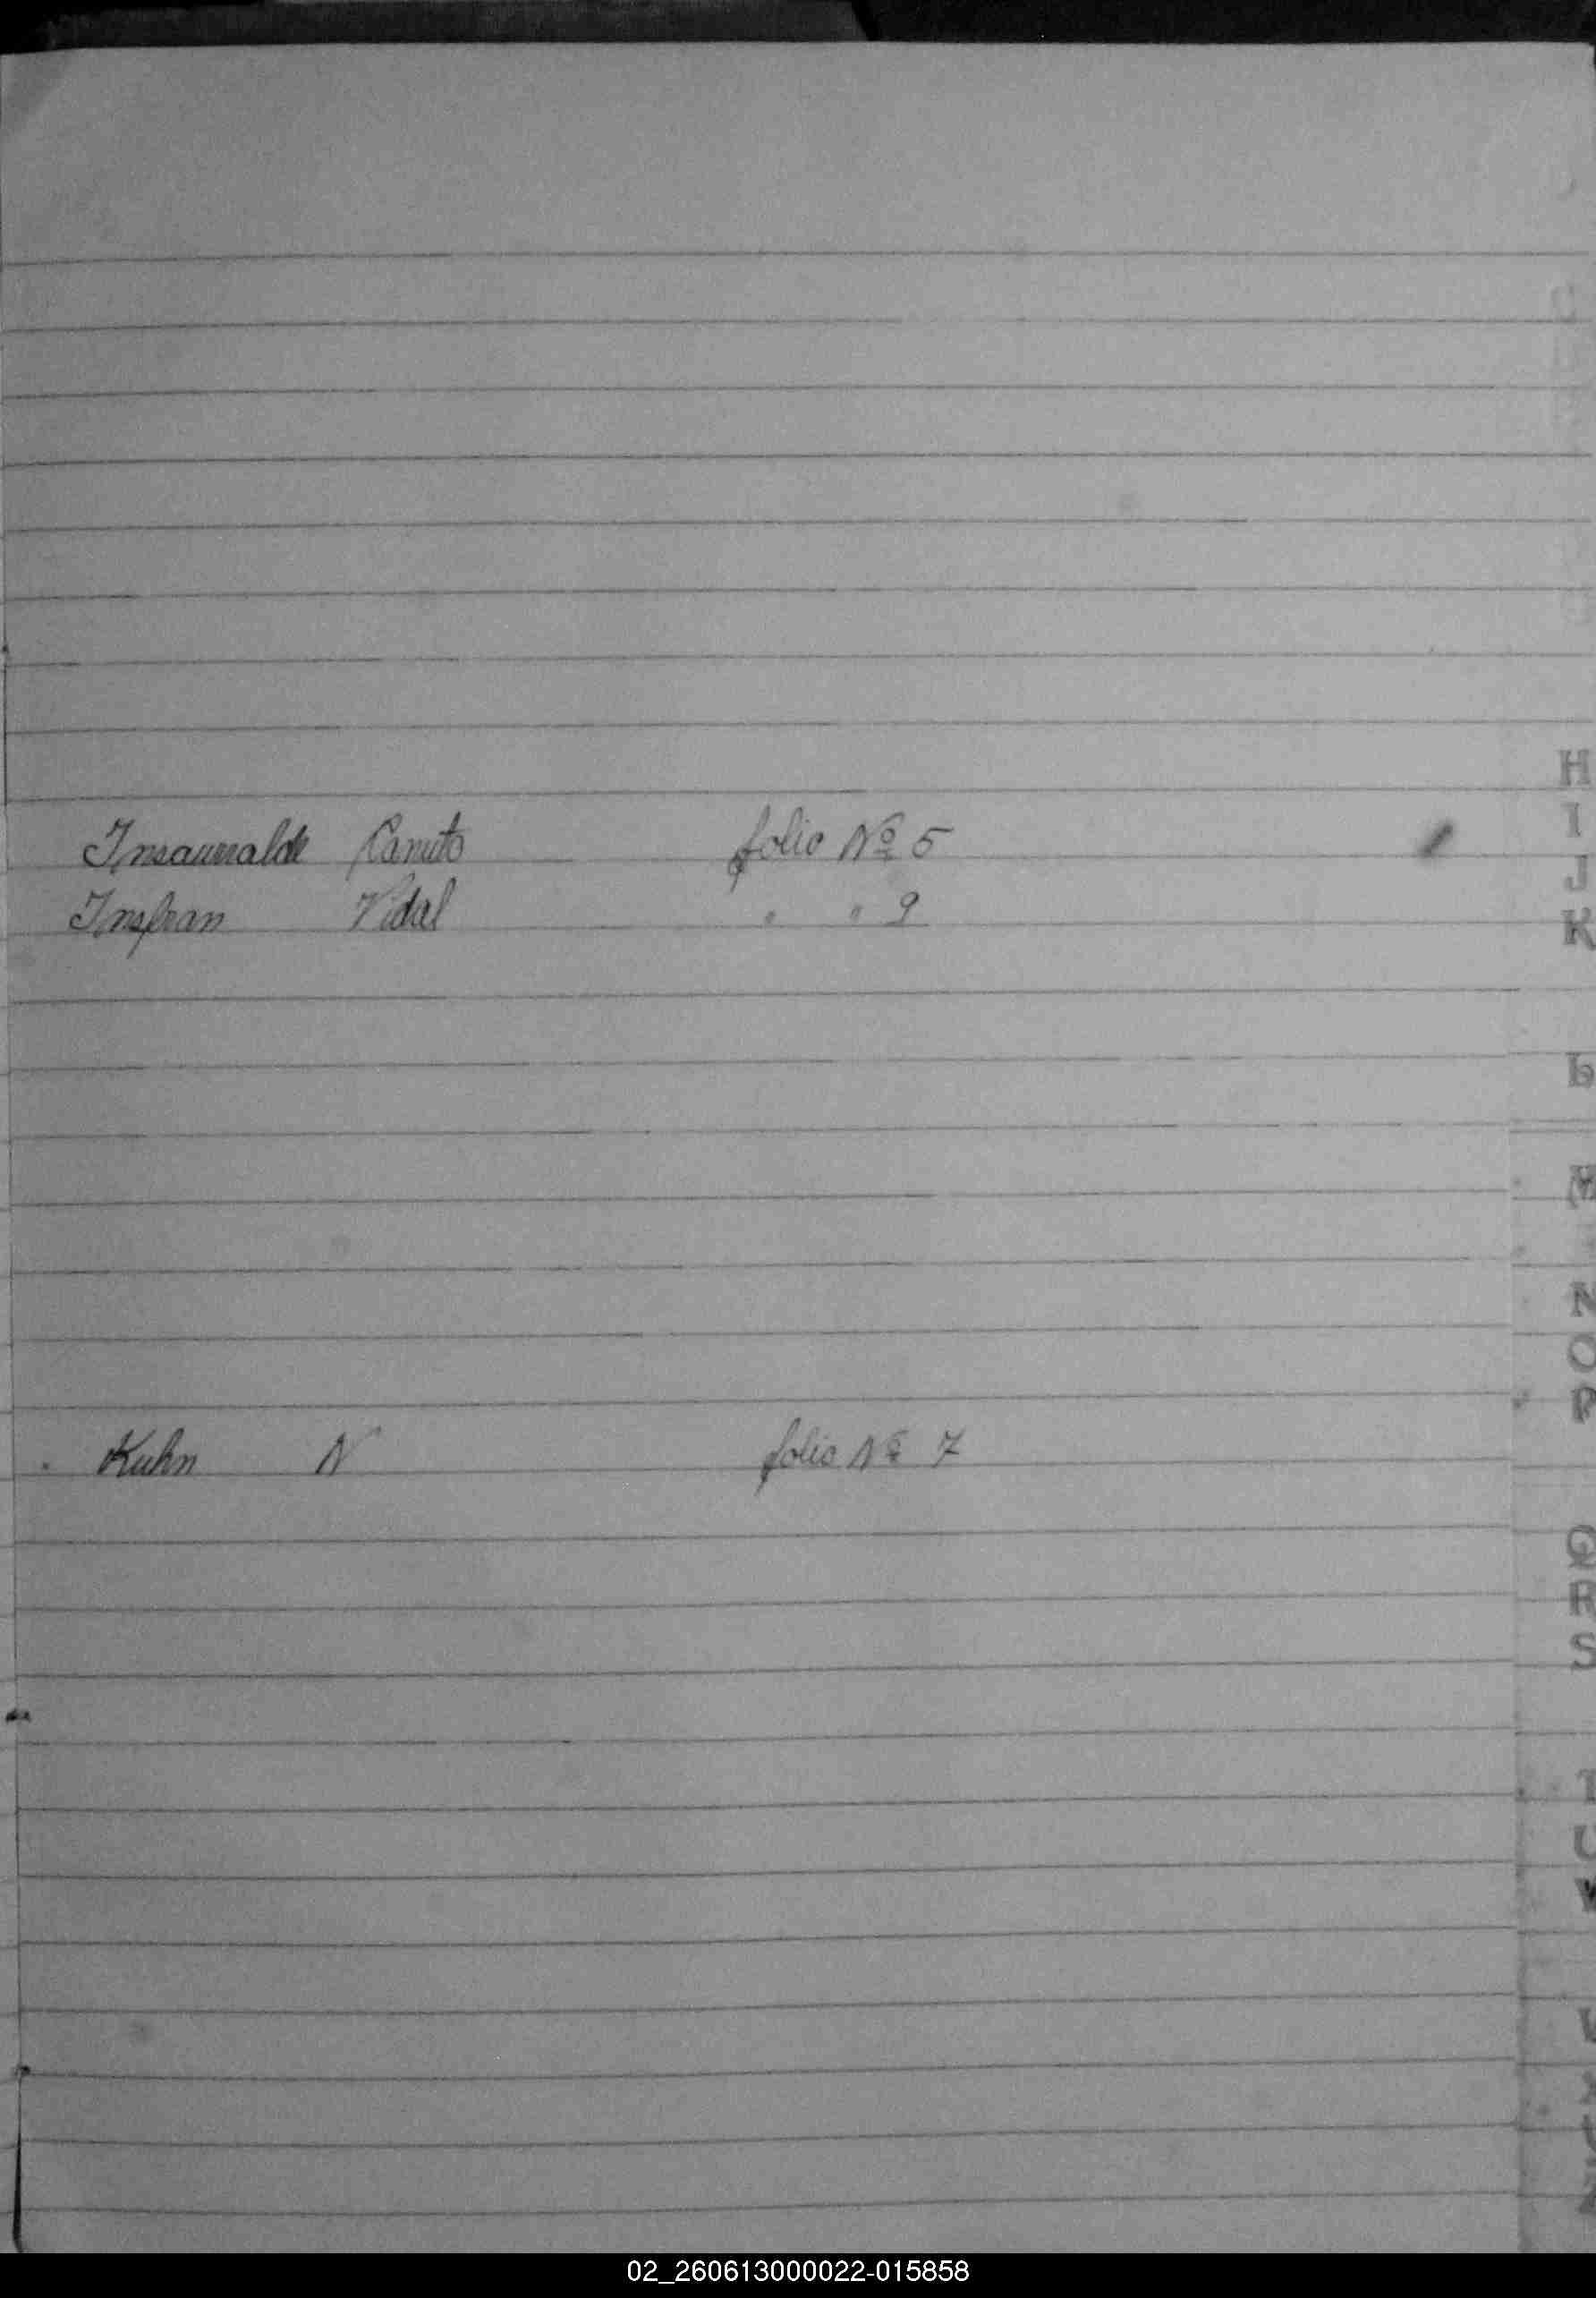 Insaurralde Canuto folio Nº 5
Insfran Vidal " " 9
Kuhn N folio Nº 7
H
I
J
K
L
M
N
O
P
Q
R
S
T
U
V
02_260613000022-015858